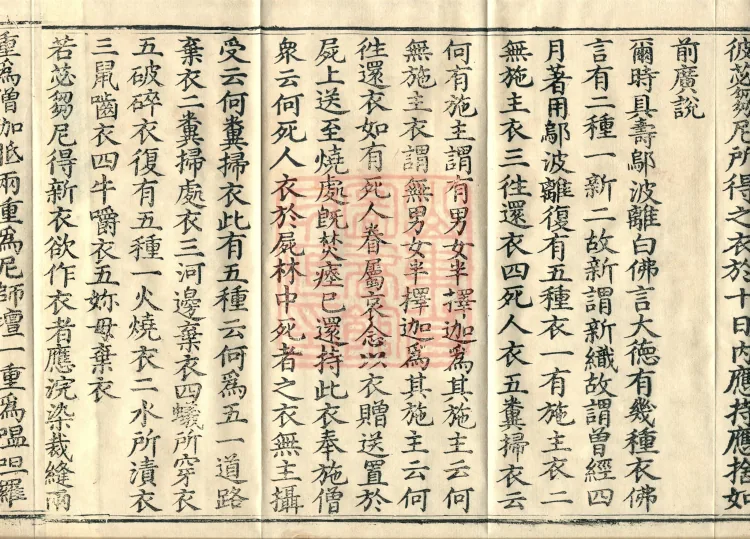 彼苾芻尼所得之衣於十日內應持應捨如
前廣說
爾時具壽鄔波離白佛言大德有幾種衣佛
言有二種一新二故新謂新織故謂曾經四
月著用鄔波離復有五種衣一有施主衣二
無施主衣三往還衣四死人衣五糞掃衣云
何有施主謂有男女半擇迦為其施主云何
無施主衣謂無男女半擇迦為其施主云何
往還衣如有死人眷屬哀念以衣贈送置於
屍上送至燒處既焚瘞已還持此衣奉施僧
衆云何死人衣於屍林中死者之衣無主攝
受云何糞掃衣此有五種云何為五一道路
棄衣二糞掃處衣三河邊棄衣四蟻所穿衣
五破碎衣復有五種一火燒衣二水所漬衣
三鼠嚙衣四牛嚼衣五妳母棄衣
若苾芻尼得新衣欲作衣者應浣染裁縫兩
重為僧伽胝兩重為尼師壇一重為嗢呾羅